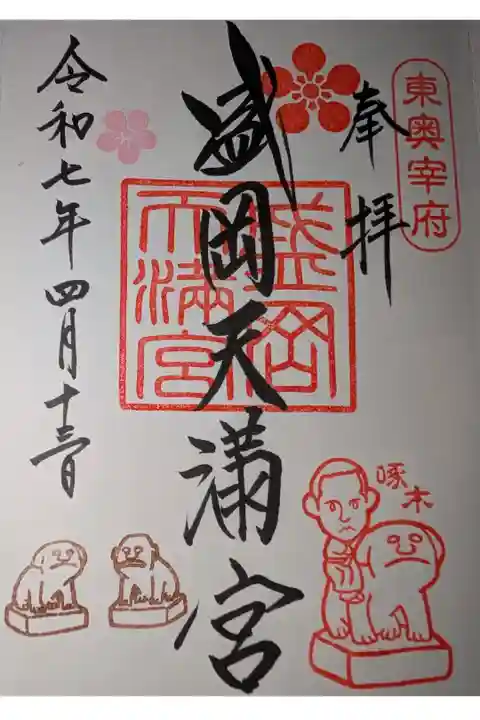 東奥宰府
奉拝
盛岡天満宮
盛岡
天満宮
令和七年四月十三日
啄木